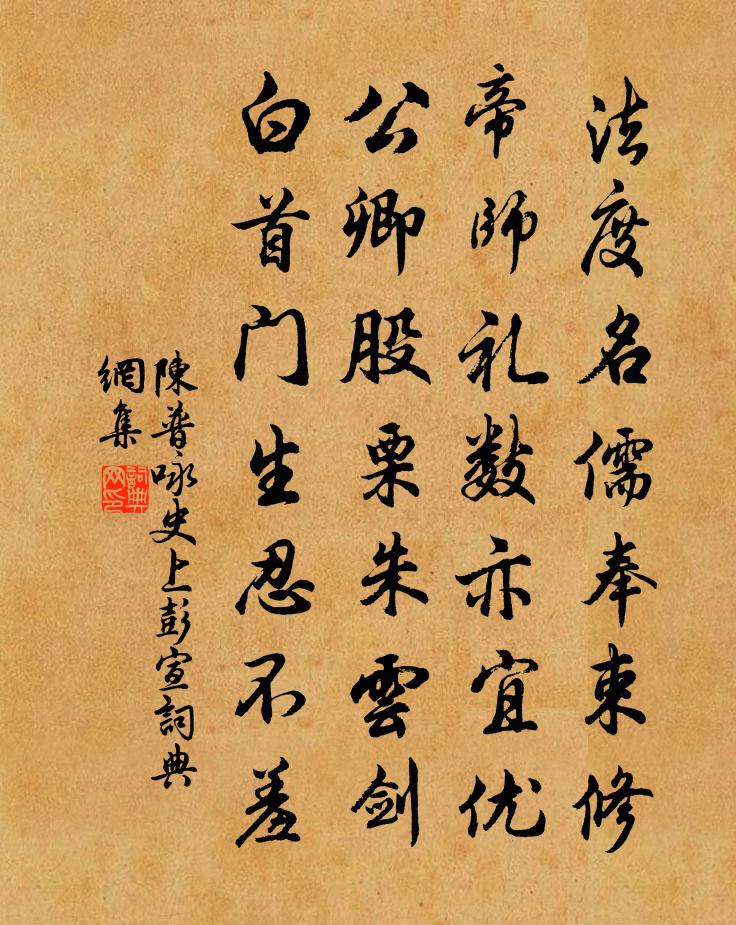 法度名儒奉束修
帝師礼数亦宜优
公卿股栗朱雲剑
白首门生忍不羞
陳普咏史上彭宣詞典
網集
詞典
网印